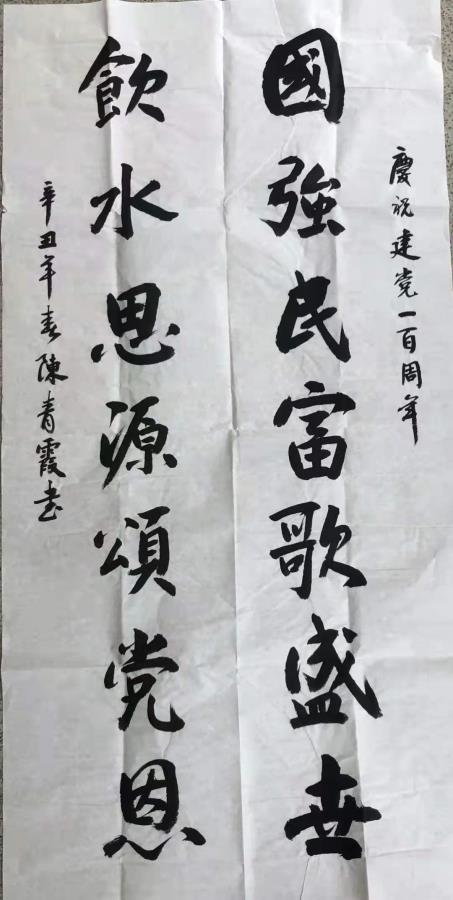 慶祝建党一百周年
國強民富歌盛世
飲水思源頌党恩
辛丑年春陳青霞书